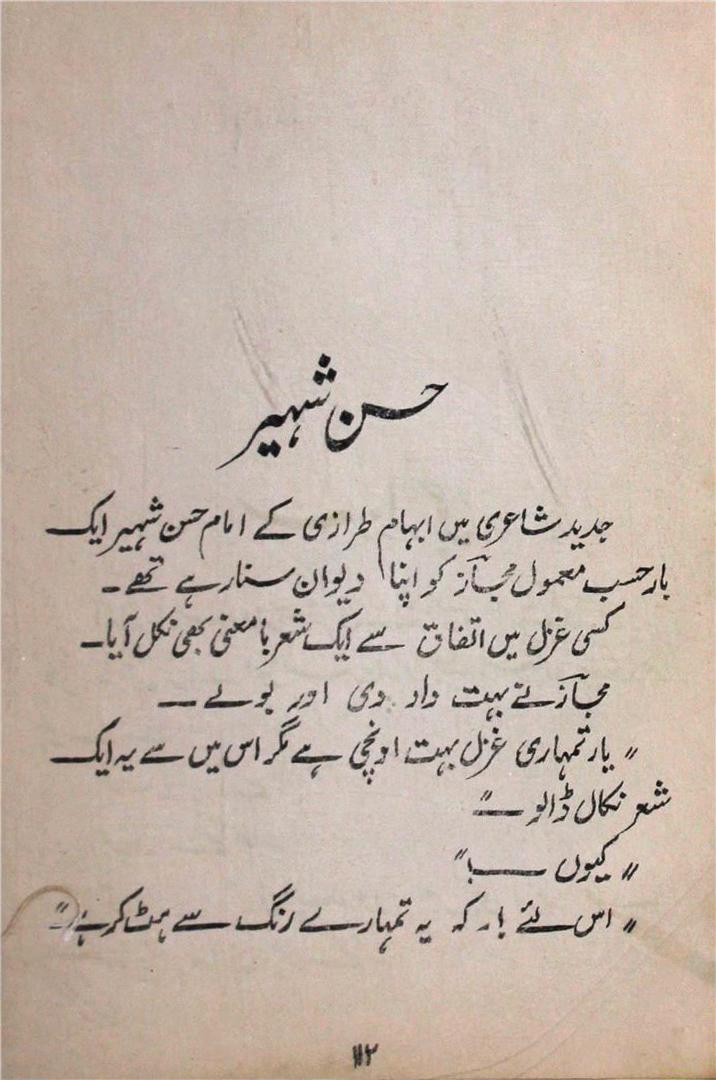 حسن شہیر
جدید شاعری میں ابہام طرازی کے امام حسن شہیر ایک
بار حسب معمول مجاز کو اپنا دیوان سنا رہے تھے۔
کسی غزل میں اتفاق سے ایک شعر بامعنی بھی نکل آیا۔
مجاز نے بہت داد دی اور بولے —
"یار تمہاری غزل بہت اونچی ہے مگر اس میں سے یہ ایک
شعر نکال ڈالو —"
"کیوں —!"
"اس لئے یار کہ یہ تمہارے رنگ سے ہٹ کر ہے"
۱۱۲